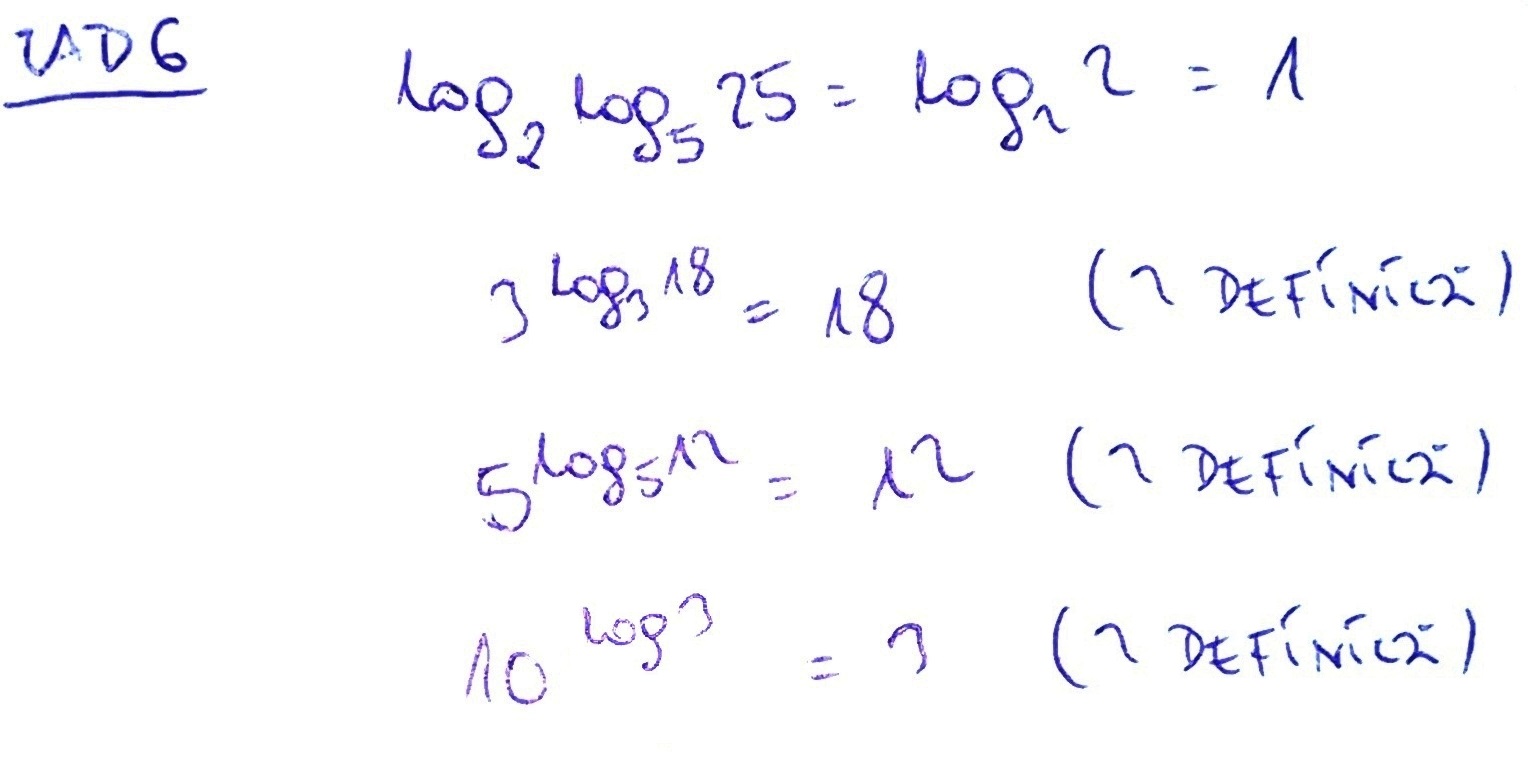 ZAD 6
log₂ log₅ 25 = log₂ 2 = 1
3^(log₃ 18) = 18 (Z DEFINICJI)
5^(log₅ 12) = 12 (Z DEFINICJI)
10^(log 3) = 3 (Z DEFINICJI)